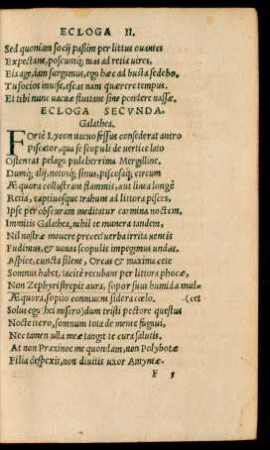 ECLOGA II.
Sed quoniam socij paßim per littus ouantes
Expectant, poscuntq; tuas ad retia uires,
Eia age, iam surgamus, ego hæc ad busta sedebo,
Tu socios inuise, escas nam quærere tempus.
Et tibi nunc uacuæ fluitant sine pondere nassæ.
ECLOGA SECVNDA.
Galathea.
FOrtè Lycon uacuo fessus consederat antro
Piscator, qua se scopuli de uertice lato
Ostentat pelago pulcherrima Mergilline.
Dumq; alij notosq; sinus, piscosaq; circum
Æquora collustrant flammis, aut linea longè
Retia, captiuosque trahunt ad littora pisces,
Ipse per obscuram meditatur carmina noctem,
Immitis Galathea, nihil te munera tandem,
Nil nostræ mouere preces? uerba irrita uentis
Fudimus, & uanas scopulis impegimus undas.
Aspice, cuncta silent, Orcas & maxima cete
Somnus habet, tacitè recubant per littora phocæ,
Non Zephyri strepit aura, sopor suus humida mul-
Æquora, sopito conniuent sidera cœlo. (cet
Solus ego (hei misero) dum tristi pectore questus
Nocte itero, somnum tota de mente fugaui,
Nec tamen ulla meæ tangit te cura salutis.
At non Praxinoe me quondam, non Polybotæ
Filia despexit, non diuitis uxor Amyntæ.
F 5